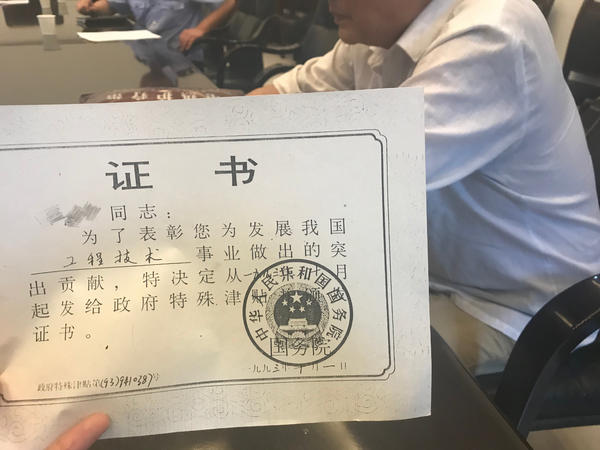 证 书
同志：
为了表彰您为发展我国
工程技术 事业做出的突
出贡献，特决定从一九 月
起发给政府特殊津贴
证书。
中华人民共和国国务院
国务院
一九九三年 月一日
政府特殊津贴第(93)9410387号